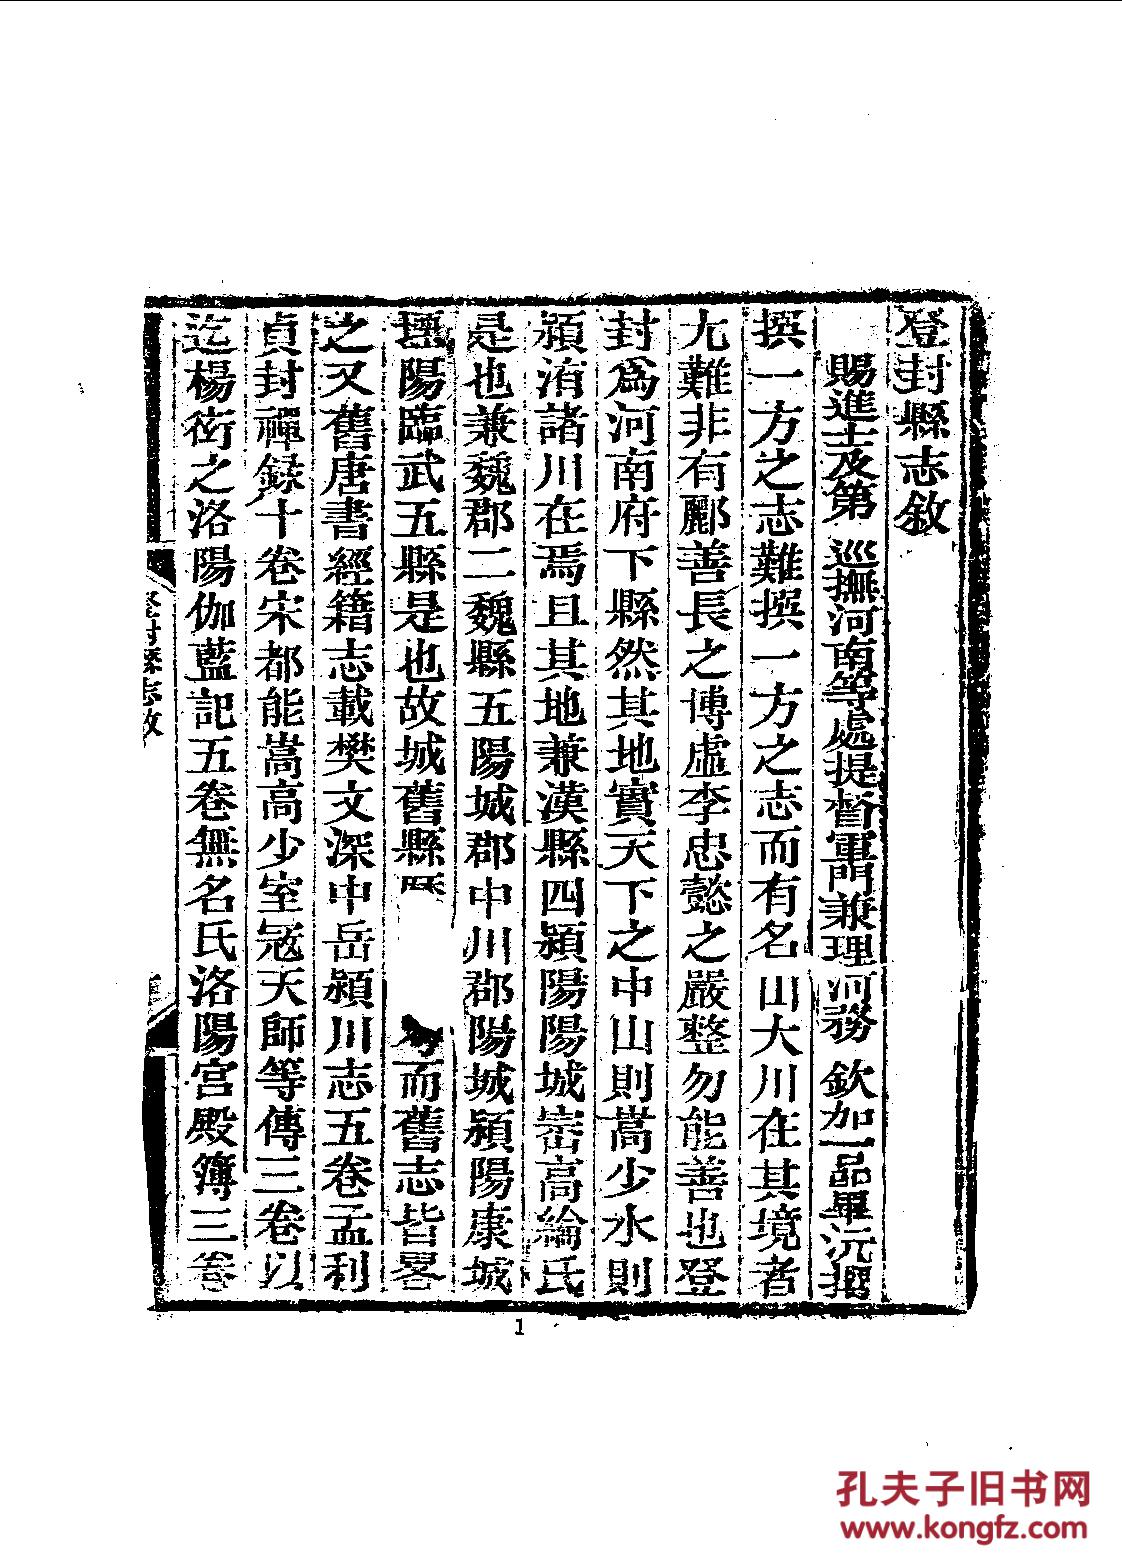 登封縣志敘
賜進士及第 巡撫河南等處提督軍門兼理河務 欽加一品畢沅撰
撰一方之志難撰一方之志而有名山大川在其境者
尢難非有酈善長之博虛李忠懿之嚴整勿能善也登
封爲河南府下縣然其地實天下之中山則嵩少水則
潁洧諸川在焉且其地兼漢縣四潁陽陽城崈高綸氏
是也兼魏郡二魏縣五陽城郡中川郡陽城潁陽康城
堙陽臨武五縣是也故城舊縣 而舊志皆畧
之又舊唐書經籍志載樊文深中岳潁川志五卷孟利
貞封禪録十卷宋都能嵩高少室寇天師等傳三卷以
迄楊衒之洛陽伽藍記五卷無名氏洛陽宫殿簿三卷
登封縣志敘
1
孔夫子旧书网
www.kongfz.com